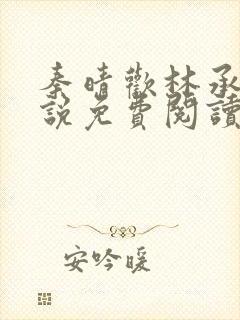 秦晴歡林承
說免費閱讀
安吟暖